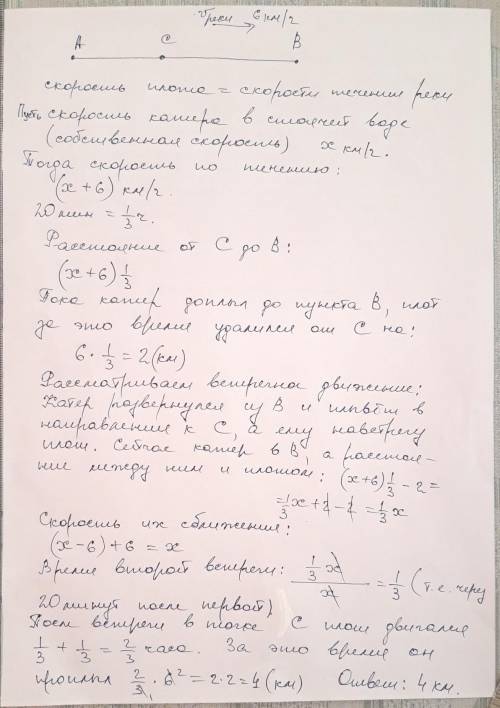 Vреки 6 км/ч
A C B
скорость плота = скорости течения реки
Пусть скорость катера в стоячей воде
(собственная скорость) x км/ч.
Тогда скорость по течению:
(x+6) км/ч.
20 мин = 1/3 ч.
Расстояние от C до B:
(x+6) 1/3
Пока катер доплыл до пункта B, плот
за это время удалился от C на:
6 · 1/3 = 2 (км)
Рассматриваем встречное движение:
Катер развернулся из B и плывёт в
направлении к C, а ему навстречу
плот. Сейчас катер в B, а расстоя-
ние между ним и плотом: (x+6) 1/3 - 2 =
= 1/3 x + 2 - 2 = 1/3 x
Скорость их сближения:
(x-6) + 6 = x
Время второй встречи: (1/3 x) / x = 1/3 (т.е. через
20 минут после первой)
После встречи в точке C плот двигался
1/3 + 1/3 = 2/3 часа. За это время он
проплыл 2/3 · 6 2 = 2·2 = 4 (км) Ответ: 4 км.